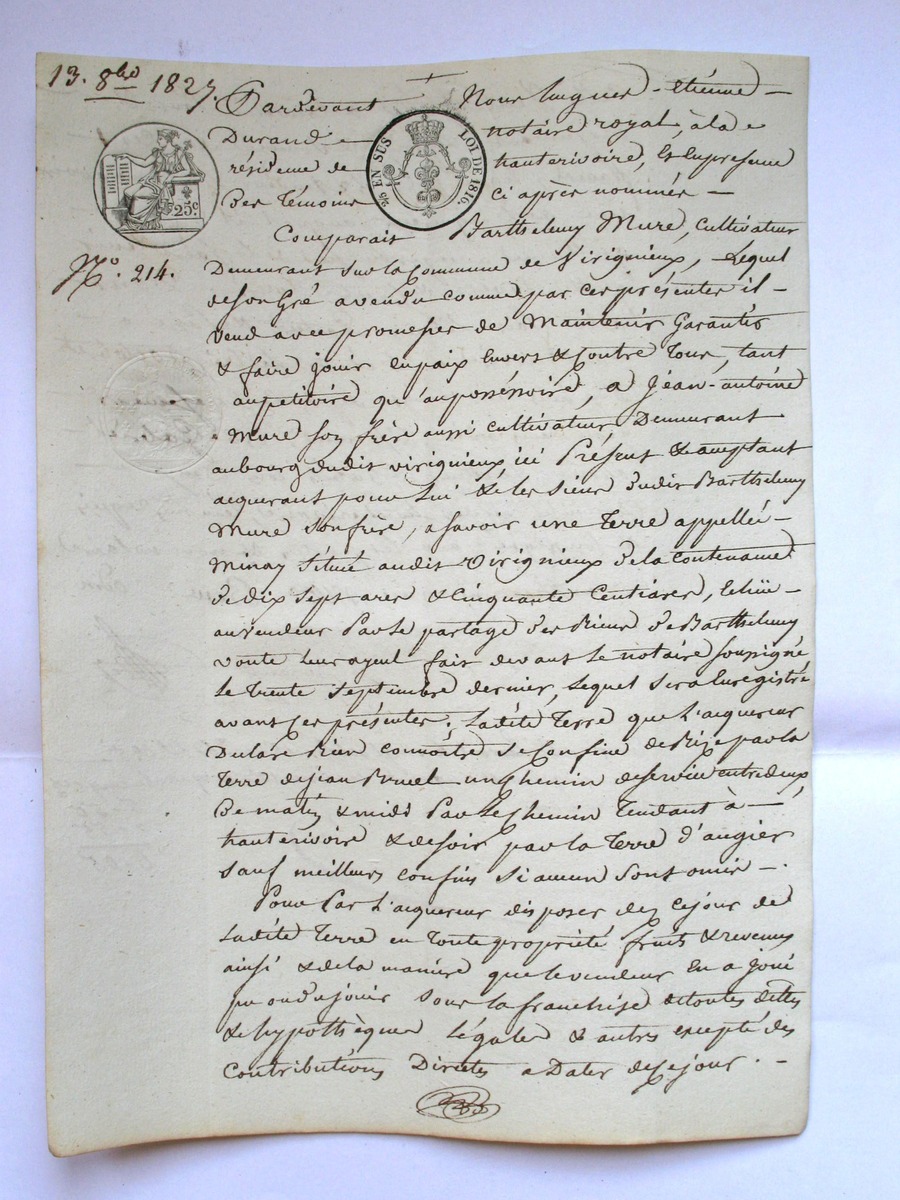 13. 8bre 1827.
Pardevant Nous hugues-étienne-
Durand notaire royal, à la
résidence de hauterivoire, Et En presence
Des Témoins ci après nommés-
EN SUS LOI DE 1816.
25c
Comparait Barthelemy Mure, cultivateur
N°. 214.
Demeurant sur la Commune de Virignieux, Lequel
de son Gré a vendu comme par ces présentes il-
vend avec promesses de Maintenir Garantir
& faire jouir en paix Envers & Contre Tous, tant
au petitoire qu'au possessoire, a Jean-antoine
Mure son frère aussi cultivateur Demeurant
au bourg dudit virignieux, ici Présent & acceptant
acquerant pour Lui & les siens dudit Barthelemy
Mure son frère, a savoir une Terre appellée-
Minay située audit Virignieux De la Contenance
De dix sept ares & Cinquante Centiares, Echue-
au vendeur Par le partage des Biens De Barthelemy
voute leur ayeul fait devant Le notaire soussigné
Le Trente Septembre dernier, Lequel sera Enregistré
avant ces présentes; Ladite Terre que L'acquereur
Declare Bien connoitre se Confine de Bize par la
Terre de jean Bruel un Chemin de service entre deux,
De matin & midi Par le Chemin Tendant à-
hauterivoire & de soir par la Terre d'augier
sauf meilleurs confins si aucun sont omis-.
Pour Par L'acquereur disposer dez ce jour de
Ladite Terre en Toute propriété fruits & revenus
ainsi & de la manière que le vendeur En a joui
pu ou du jouir sous la franchise de toutes dettes
& hypothèques Légales & autres excepté des
Contributions Directes a Dater de ce jour.-